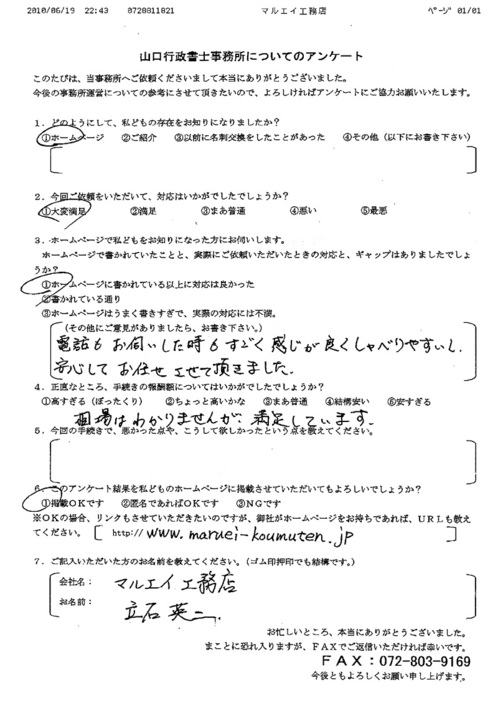 2010/06/19 22:43 0728811821 マルエイ工務店 ﾍﾟｰｼﾞ 01/01
山口行政書士事務所についてのアンケート
このたびは、当事務所へご依頼くださいまして本当にありがとうございました。
今後の事務所運営についての参考にさせて頂きたいので、よろしければアンケートにご協力お願いいたします。
1．どのようにして、私どもの存在をお知りになりましたか？
①ホームページ ②ご紹介 ③以前に名刺交換をしたことがあった ④その他（以下にお書き下さい）
2．今回ご依頼をいただいて、対応はいかがでしたでしょうか？
①大変満足 ②満足 ③まあ普通 ④悪い ⑤最悪
3．ホームページで私どもをお知りになった方にお伺いします。
ホームページで書かれていたことと、実際にご依頼いただいたときの対応と、ギャップはありましたでしょ
うか？
①ホームページに書かれている以上に対応は良かった
②書かれている通り
③ホームページはうまく書きすぎで、実際の対応には不満。
（その他にご意見がありましたら、お書き下さい。）
電話も お伺いした時も すごく 感じが 良くしゃべりやすいし、
安心して お任せ させて 頂きました。
4．正直なところ、手続きの報酬額についてはいかがでしたでしょうか？
①高すぎる（ぼったくり） ②ちょっと高いかな ③まあ普通 ④結構安い ⑥安すぎる
相場は わかりませんが、満足しています。
5．今回の手続きで、悪かった点や、こうして欲しかったという点を教えてください。
6．このアンケート結果を私どものホームページに掲載させていただいてもよろしいでしょうか？
①掲載OKです ②匿名であればOKです ③NGです
※OKの場合、リンクもさせていただきたいのですが、御社がホームページをお持ちであれば、URLも教え
てください。 [ http://www.maruei-koumuten.jp ]
7．ご記入いただいた方のお名前を教えてください。（ゴム印押印でも結構です。）
会社名： マルエイ工務店
お名前： 立石 英二
お忙しいところ、本当にありがとうございました。
まことに恐れ入りますが、FAXでご返信いただければ幸いです。
FAX：072-803-9169
今後ともよろしくお願い申し上げます。